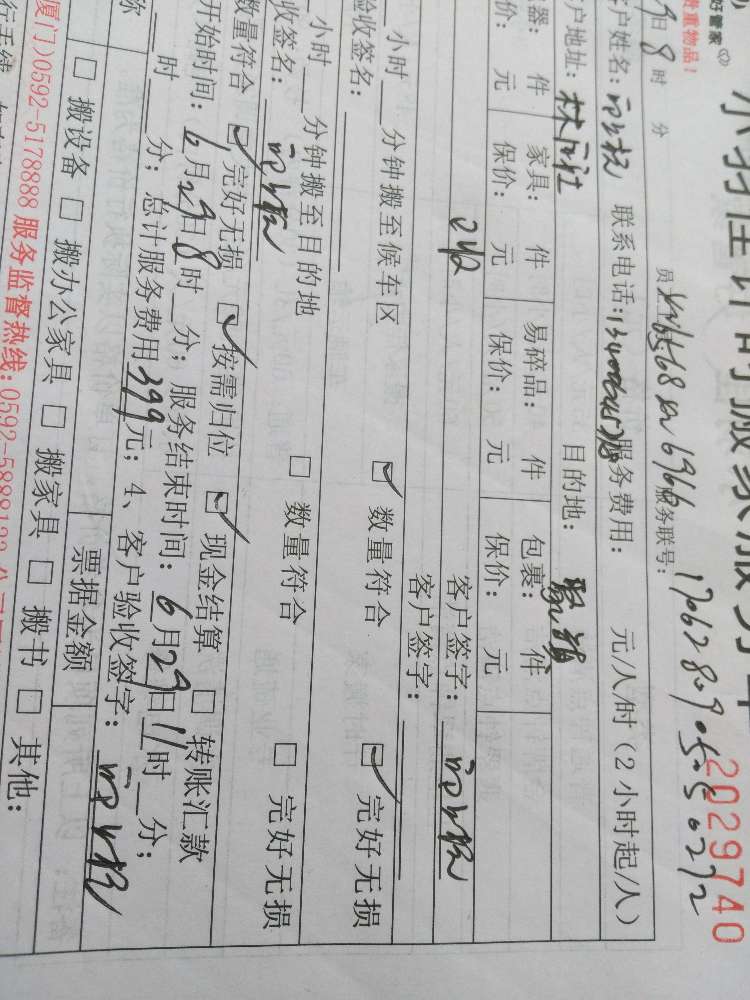 小羽佳计时搬家服务单 2029740
好管家
贵重物品!
日8时 分
服务联号: 170628090550272
客户姓名: 联系电话: 服务费用: 元/人/时(2小时起/人)
客户地址: 目的地:
器: 件 家具: 件 易碎品: 件 包裹: 件
价: 元 保价: 元 保价: 元 保价: 元
客户签字:
小时 分钟搬至候车区 ☑ 数量符合 ☑ 完好无损
验收签名: 客户签字:
小时 分钟搬至目的地 □ 数量符合 □ 完好无损
收签名:
数量符合 ☑ 完好无损 ☑ 按需归位 ☑ 现金结算 □ 转账汇款
开始时间: 6月29日8时 分; 服务结束时间: 6月29日11时 分;
时 分; 总计服务费用399元; 4、客户验收签字:
称 票据金额
□ 搬设备 □ 搬办公家具 □ 搬家具 □ 搬书 □ 其他:
厦门)0592-5178888 服务监督热线:0592-5888123